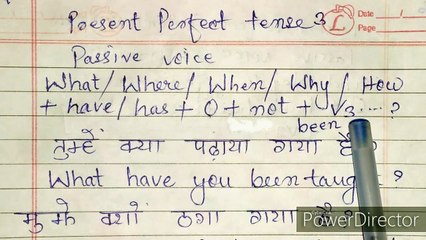 Present Perfect tense 3
Date
Page
Passive voice
What / Where / When / Why / How
+ have / has + O + not + V3 .... ?
been
तुम्हें क्या पढ़ाया गया है
What have you been taught ?
मुझे क्यों ठगा गया है ?
PowerDirector